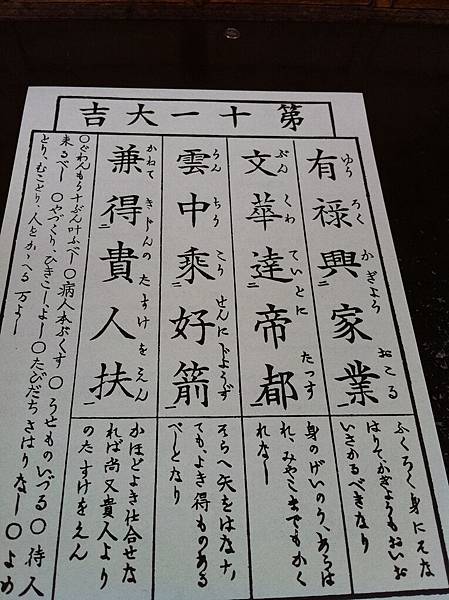 第十一大吉
有禄興家業
ゆうろくかぎようおこる
ふくろく身にそな
はりて、かぎようもおいお
いさかるべきなり
文華達帝都
ぶんくわていとにたつす
身のげいのり、あらは
れ、みやこまでもかく
れなし
雲中乗好箭
うんちうこうせんにじようず
そらへ矢をはなす、
ても、よき得ものある
べしとなり
兼得貴人扶
かねてきじんのたすけをえん
かほどよき仕合せな
れば尚又貴人より
のたすけをえん
○ぐわんもう十ぶん叶ふべし○病人本ぶくす○うせものいづる○待人
来るべし○やづくり、ひきこしよし○たびだちさはりなし○よめ
とり、むことり、人をかゝへる万よし